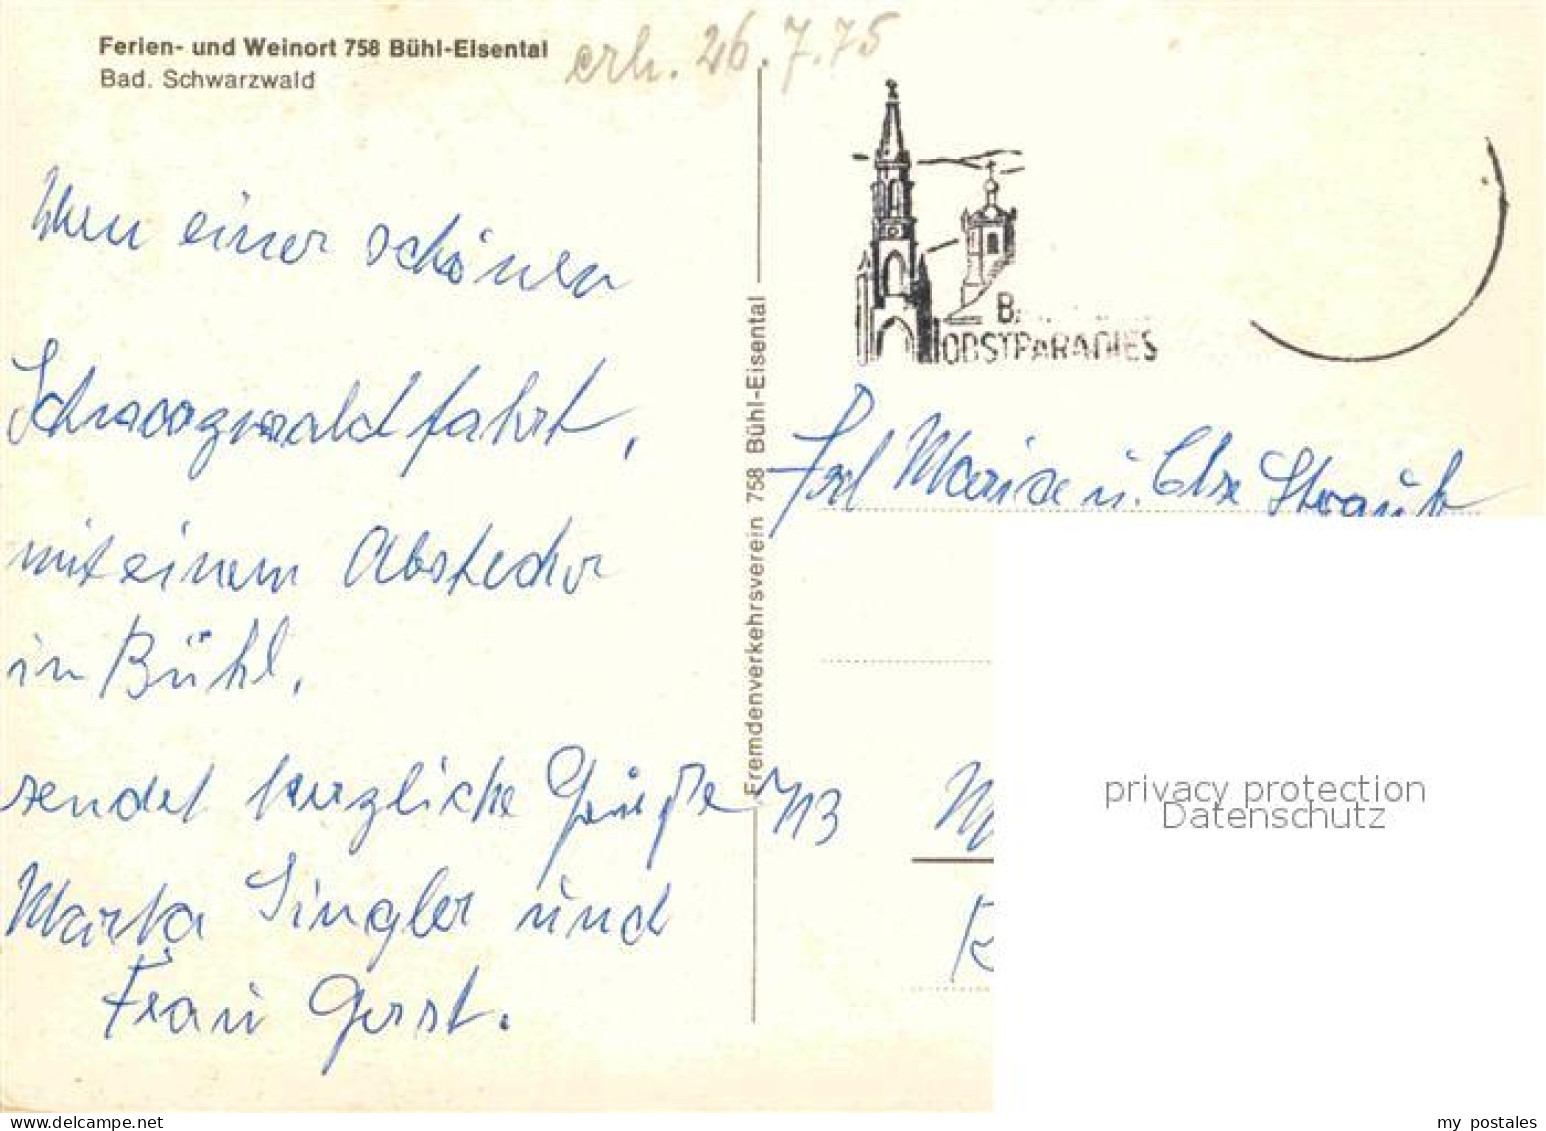 Ferien- und Weinort 758 Bühl-Eisental
Bad. Schwarzwald
erh. 26.7.75
einer schönen
Schwarzwaldfahrt,
mit einem Abstecher
in Bühl,
sendet herzliche Grüße
Marta Singler und
Frau Gerst.
Fremdenverkehrsverein 758 Bühl-Eisental
OBSTPARADIES
Frl Maria u. Else Straub
713
privacy protection
Datenschutz
my postales